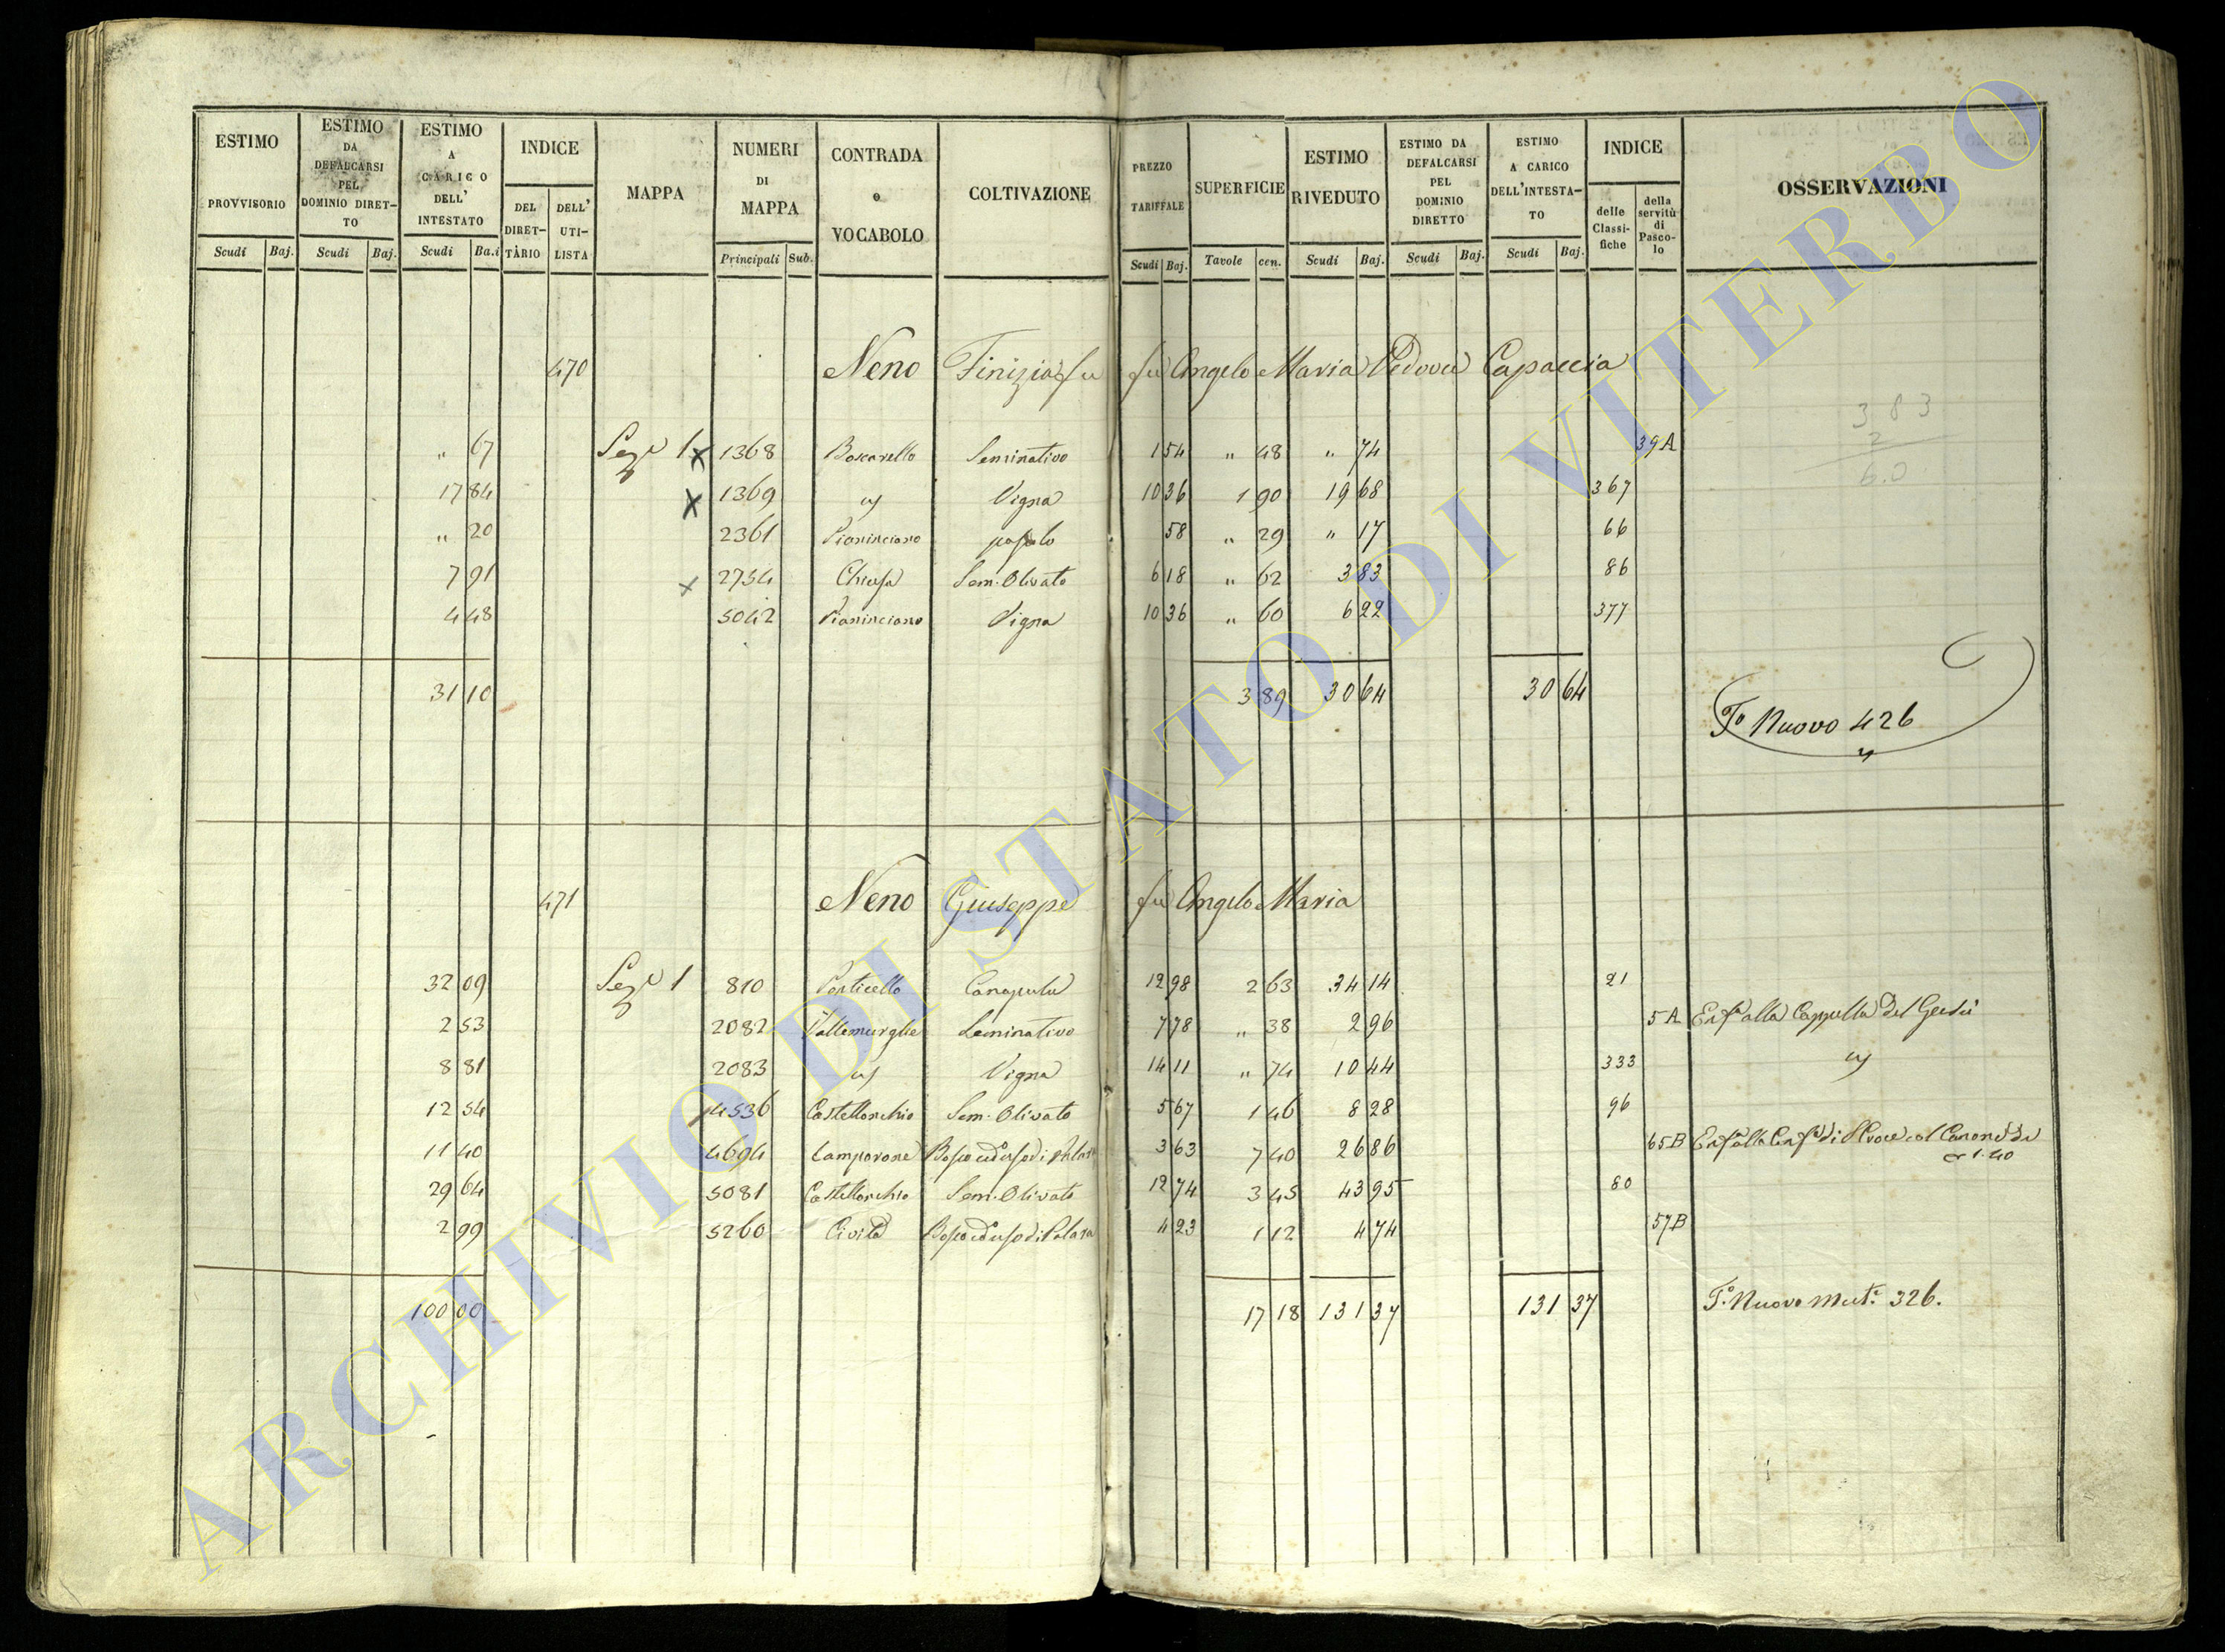 ESTIMO PROVVISORIO Scudi Baj.
ESTIMO DA DEFALCARSI PEL DOMINIO DIRET-TO Scudi Baj.
ESTIMO A CARICO DELL' INTESTATO Scudi Ba.i
INDICE DEL DIRET-TARIO DELL' UTI-LISTA
MAPPA
NUMERI DI MAPPA Principali Sub.
CONTRADA o VOCABOLO
COLTIVAZIONE
PREZZO TARIFFALE Scudi Baj.
SUPERFICIE Tavole cen.
ESTIMO RIVEDUTO Scudi Baj.
ESTIMO DA DEFALCARSI PEL DOMINIO DIRETTO Scudi Baj.
ESTIMO A CARICO DELL'INTESTA-TO Scudi Baj.
INDICE delle Classi-fiche della servitù di Pasco-lo
OSSERVAZIONI
470 Neno Finizia fu fu Angelo Maria Vedova Capaccia
" 67 Sez.e 1 x 1368 Boscarello Seminativo 1 54 " 48 " 74 39A
17 84 x 1369 Vigna 10 36 1 90 19 68 367
" 20 2361 Pianinciano 58 " 29 " 17 66
7 91 x 2754 Chiusa Sem. Olivato 6 18 " 62 3 83 86
4 48 5042 Pianinciano Vigna 10 36 " 60 6 22 377
31 10 3 89 30 64 30 64
3 83
2
6.0
F.o Nuovo 426
471 Neno Giuseppe fu Angelo Maria
32 09 Sez.e 1 810 Ponticello Canapula 12 98 2 63 34 14 21
2 53 2082 Vallemurghe Seminativo 7 78 " 38 2 96 5A Enf.a alla Cappella del Gesù
8 81 2083 Vigna 14 11 " 74 10 44 333
12 54 4536 Castellonchio Sem. Olivato 5 67 1 46 8 28 96
11 40 4694 Camporone Bosco ceduo di 3 63 7 40 26 86 65B Enf.a alla di col Canone di 1.40
29 64 5081 Castellonchio Sem. Olivato 12 74 3 45 43 95 80
2 99 5260 Civita Bosco ceduo di 4 23 1 12 4 74 57B
100 00 17 18 131 37 131 37 F.o Nuovo Mut.e 326.
ARCHIVIO DI STATO DI VITERBO